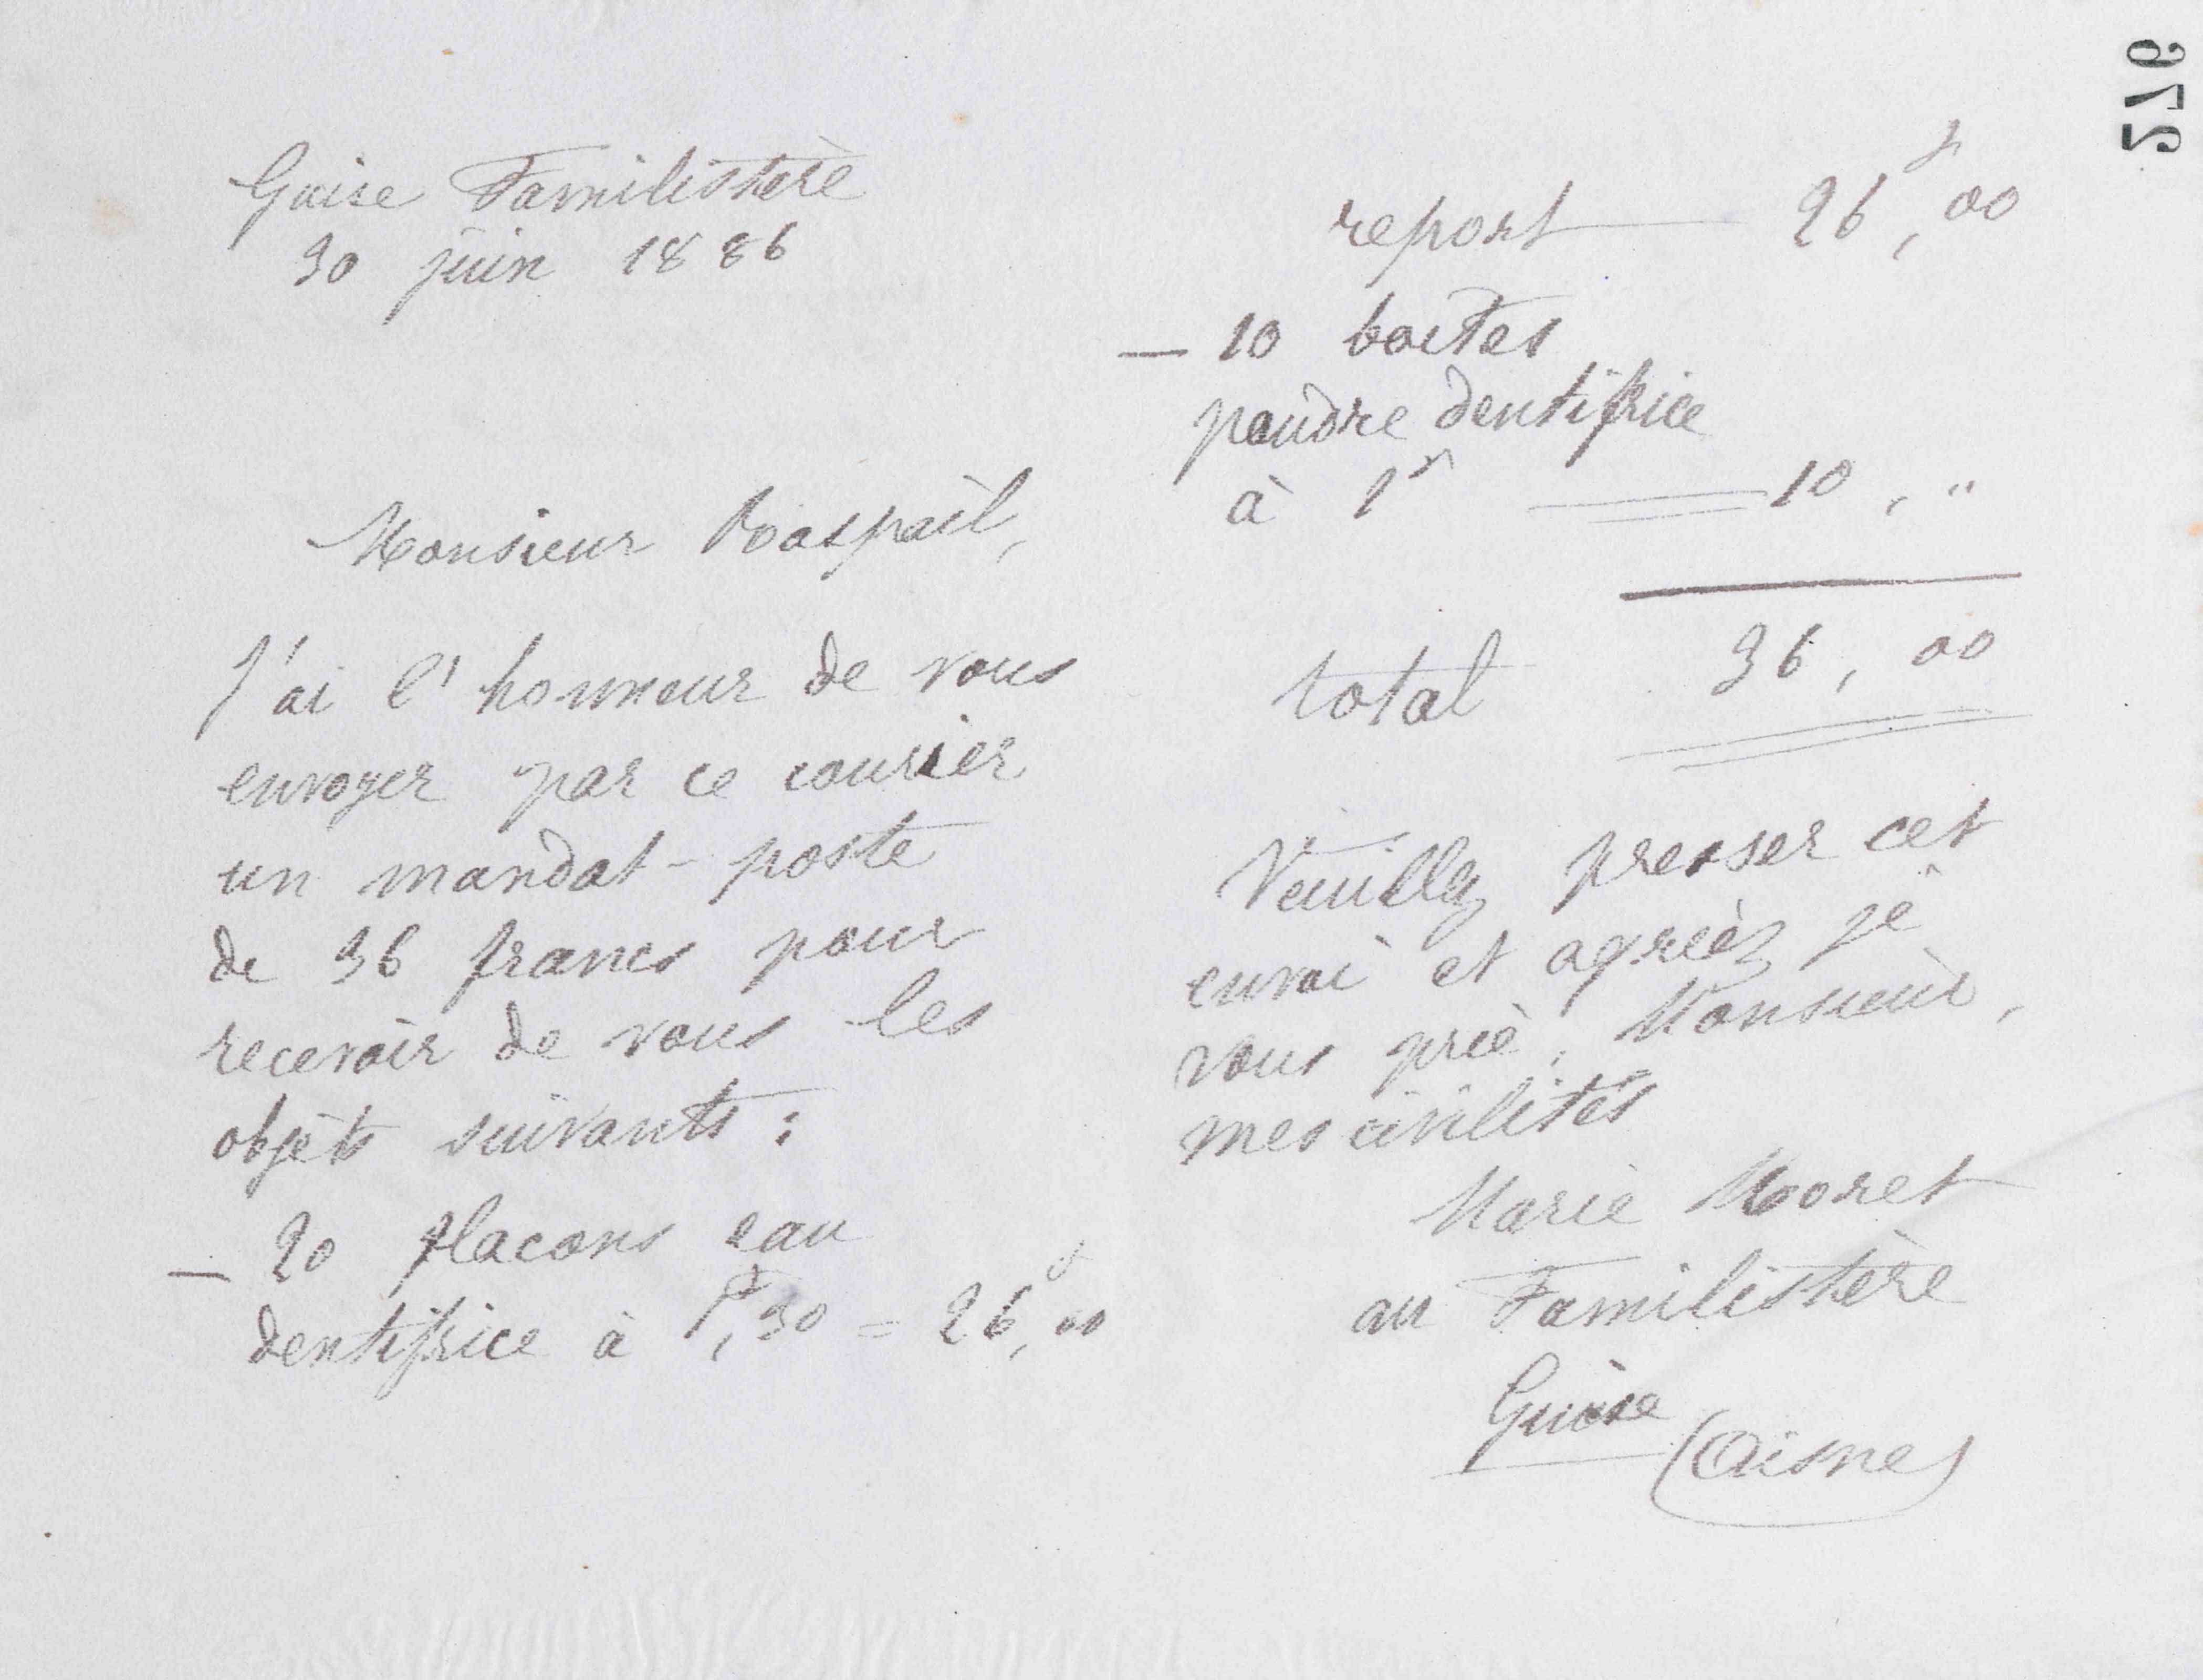 Guise Familistère
30 juin 1886
Monsieur Raspail,
J'ai l'honneur de vous
envoyer par ce courier
un mandat-poste
de 36 francs pour
recevoir de vous les
objets suivants :
— 20 flacons eau
dentifrice à 1f,30 = 26f,00
report — 26f,00
— 10 boites
poudre dentifrice
à 1f = 10, "
total 36, 00
Veuillez presser cet
envoi et agréez je
vous prie, Monsieur,
mes civilités
Marie Moret
au Familistère
Guise
(Aisne)
576